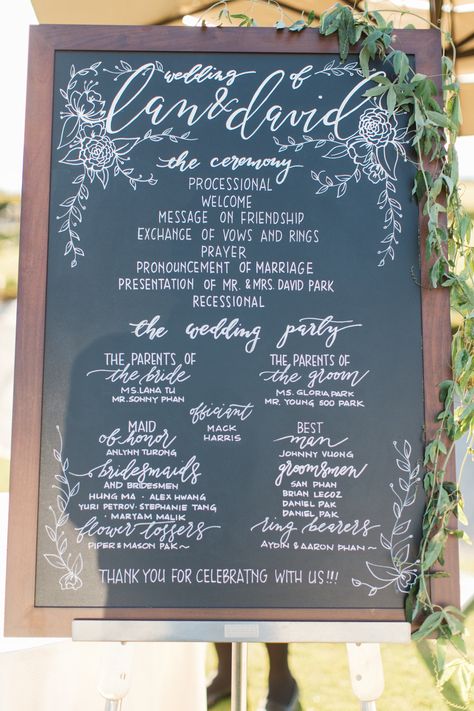 wedding of
lan & david
the ceremony
PROCESSIONAL
WELCOME
MESSAGE ON FRIENDSHIP
EXCHANGE OF VOWS AND RINGS
PRAYER
PRONOUNCEMENT OF MARRIAGE
PRESENTATION OF MR. & MRS. DAVID PARK
RECESSIONAL
the wedding party
THE PARENTS OF
the bride
MS. LANA TU
MR. SONNY PHAN
THE PARENTS OF
the groom
MS. GLORIA PARK
MR. YOUNG SOO PARK
officiant
MACK
HARRIS
MAID
of honor
ANLYNN TURONG
BEST
man
JOHNNY VUONG
bridesmaids
AND BRIDESMEN
HUNG MA · ALEX HWANG
YURI PETROV · STEPHANIE TANG
· MARYAM MALIK
groomsmen
SAN PHAN
BRIAN LECOZ
DANIEL PAK
DANIEL PAK
flower tossers
PIPER & MASON PAK ~
ring bearers
AYDIN & AARON PHAN ~
THANK YOU FOR CELEBRATNG WITH US!!!